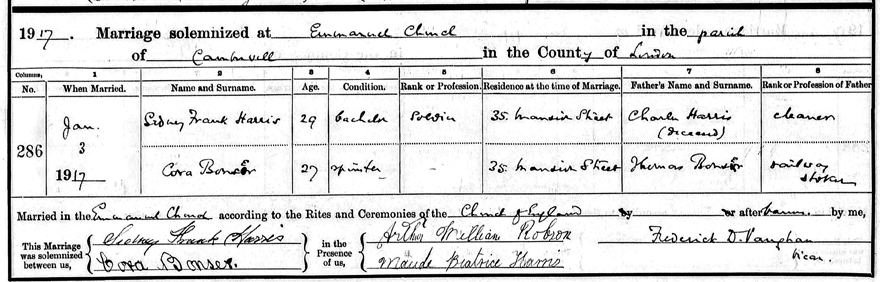 1917. Marriage solemnized at Emmanuel Church in the parish
of Camberwell in the County of London
Columns, 1 2 3 4 5 6 7 8
No. When Married. Name and Surname. Age. Condition. Rank or Profession. Residence at the time of Marriage. Father's Name and Surname. Rank or Profession of Father
286
Jan. 3 1917
Sidney Frank Harris 29 bachelor Soldier 35. Mansion Street Charles Harris (deceased) cleaner
Cora Bonser 27 spinster - 35. Mansion Street Thomas Bonser railway stoker
Married in the Emmanuel Church according to the Rites and Ceremonies of the Church of England by or after banns. by me,
This Marriage was solemnized between us, Sidney Frank Harris Cora Bonser. in the Presence of us, Arthur William Robson Maude Beatrice Harris Frederick D. Vaughan
Vicar.